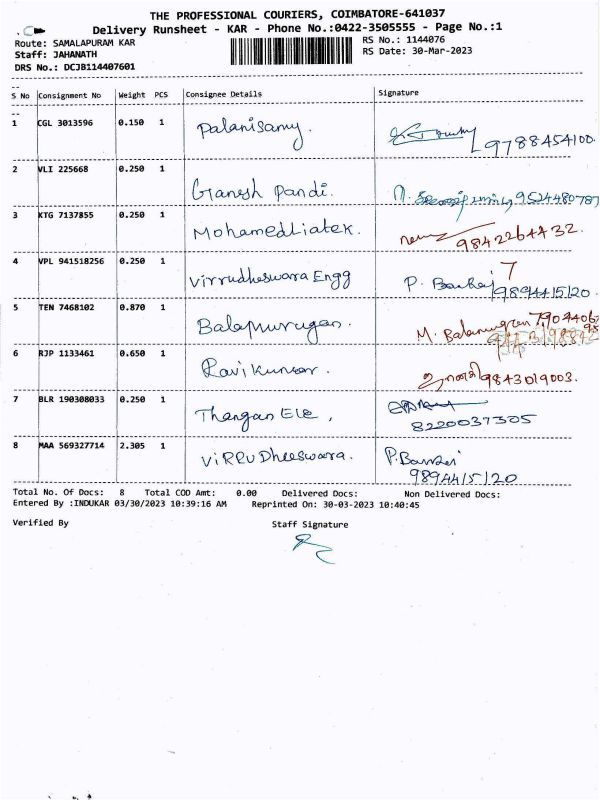 THE PROFESSIONAL COURIERS, COIMBATORE-641037
Delivery Runsheet - KAR - Phone No.:0422-3505555 - Page No.:1
Route: SAMALAPURAM KAR
RS No.: 1144076
Staff: JAHANATH
RS Date: 30-Mar-2023
DRS No.: DCJB114407601
S No Consignment No Weight PCS Consignee Details Signature
1 CGL 3013596 0.150 1 Palanisamy. 9788454100.
2 VLI 225668 0.250 1 Ganesh Pandi. 9524480787
3 KTG 7137855 0.250 1 Mohamed Liatek. 9842264432.
4 VPL 941518256 0.250 1 Virrudheswara Engg P. 9894415120.
5 TEN 7468102 0.870 1 Balamurugan. M. Balamurugan
6 RJP 1133461 0.650 1 Ravikumar. 9843019003.
7 BLR 190308033 0.250 1 Thangan Ele, 8220037305
8 MAA 569327714 2.305 1 ViRRuDheeswara. P.
9894415120
Total No. Of Docs: 8 Total COD Amt: 0.00 Delivered Docs: Non Delivered Docs:
Entered By :INDUKAR 03/30/2023 10:39:16 AM Reprinted On: 30-03-2023 10:40:45
Verified By Staff Signature